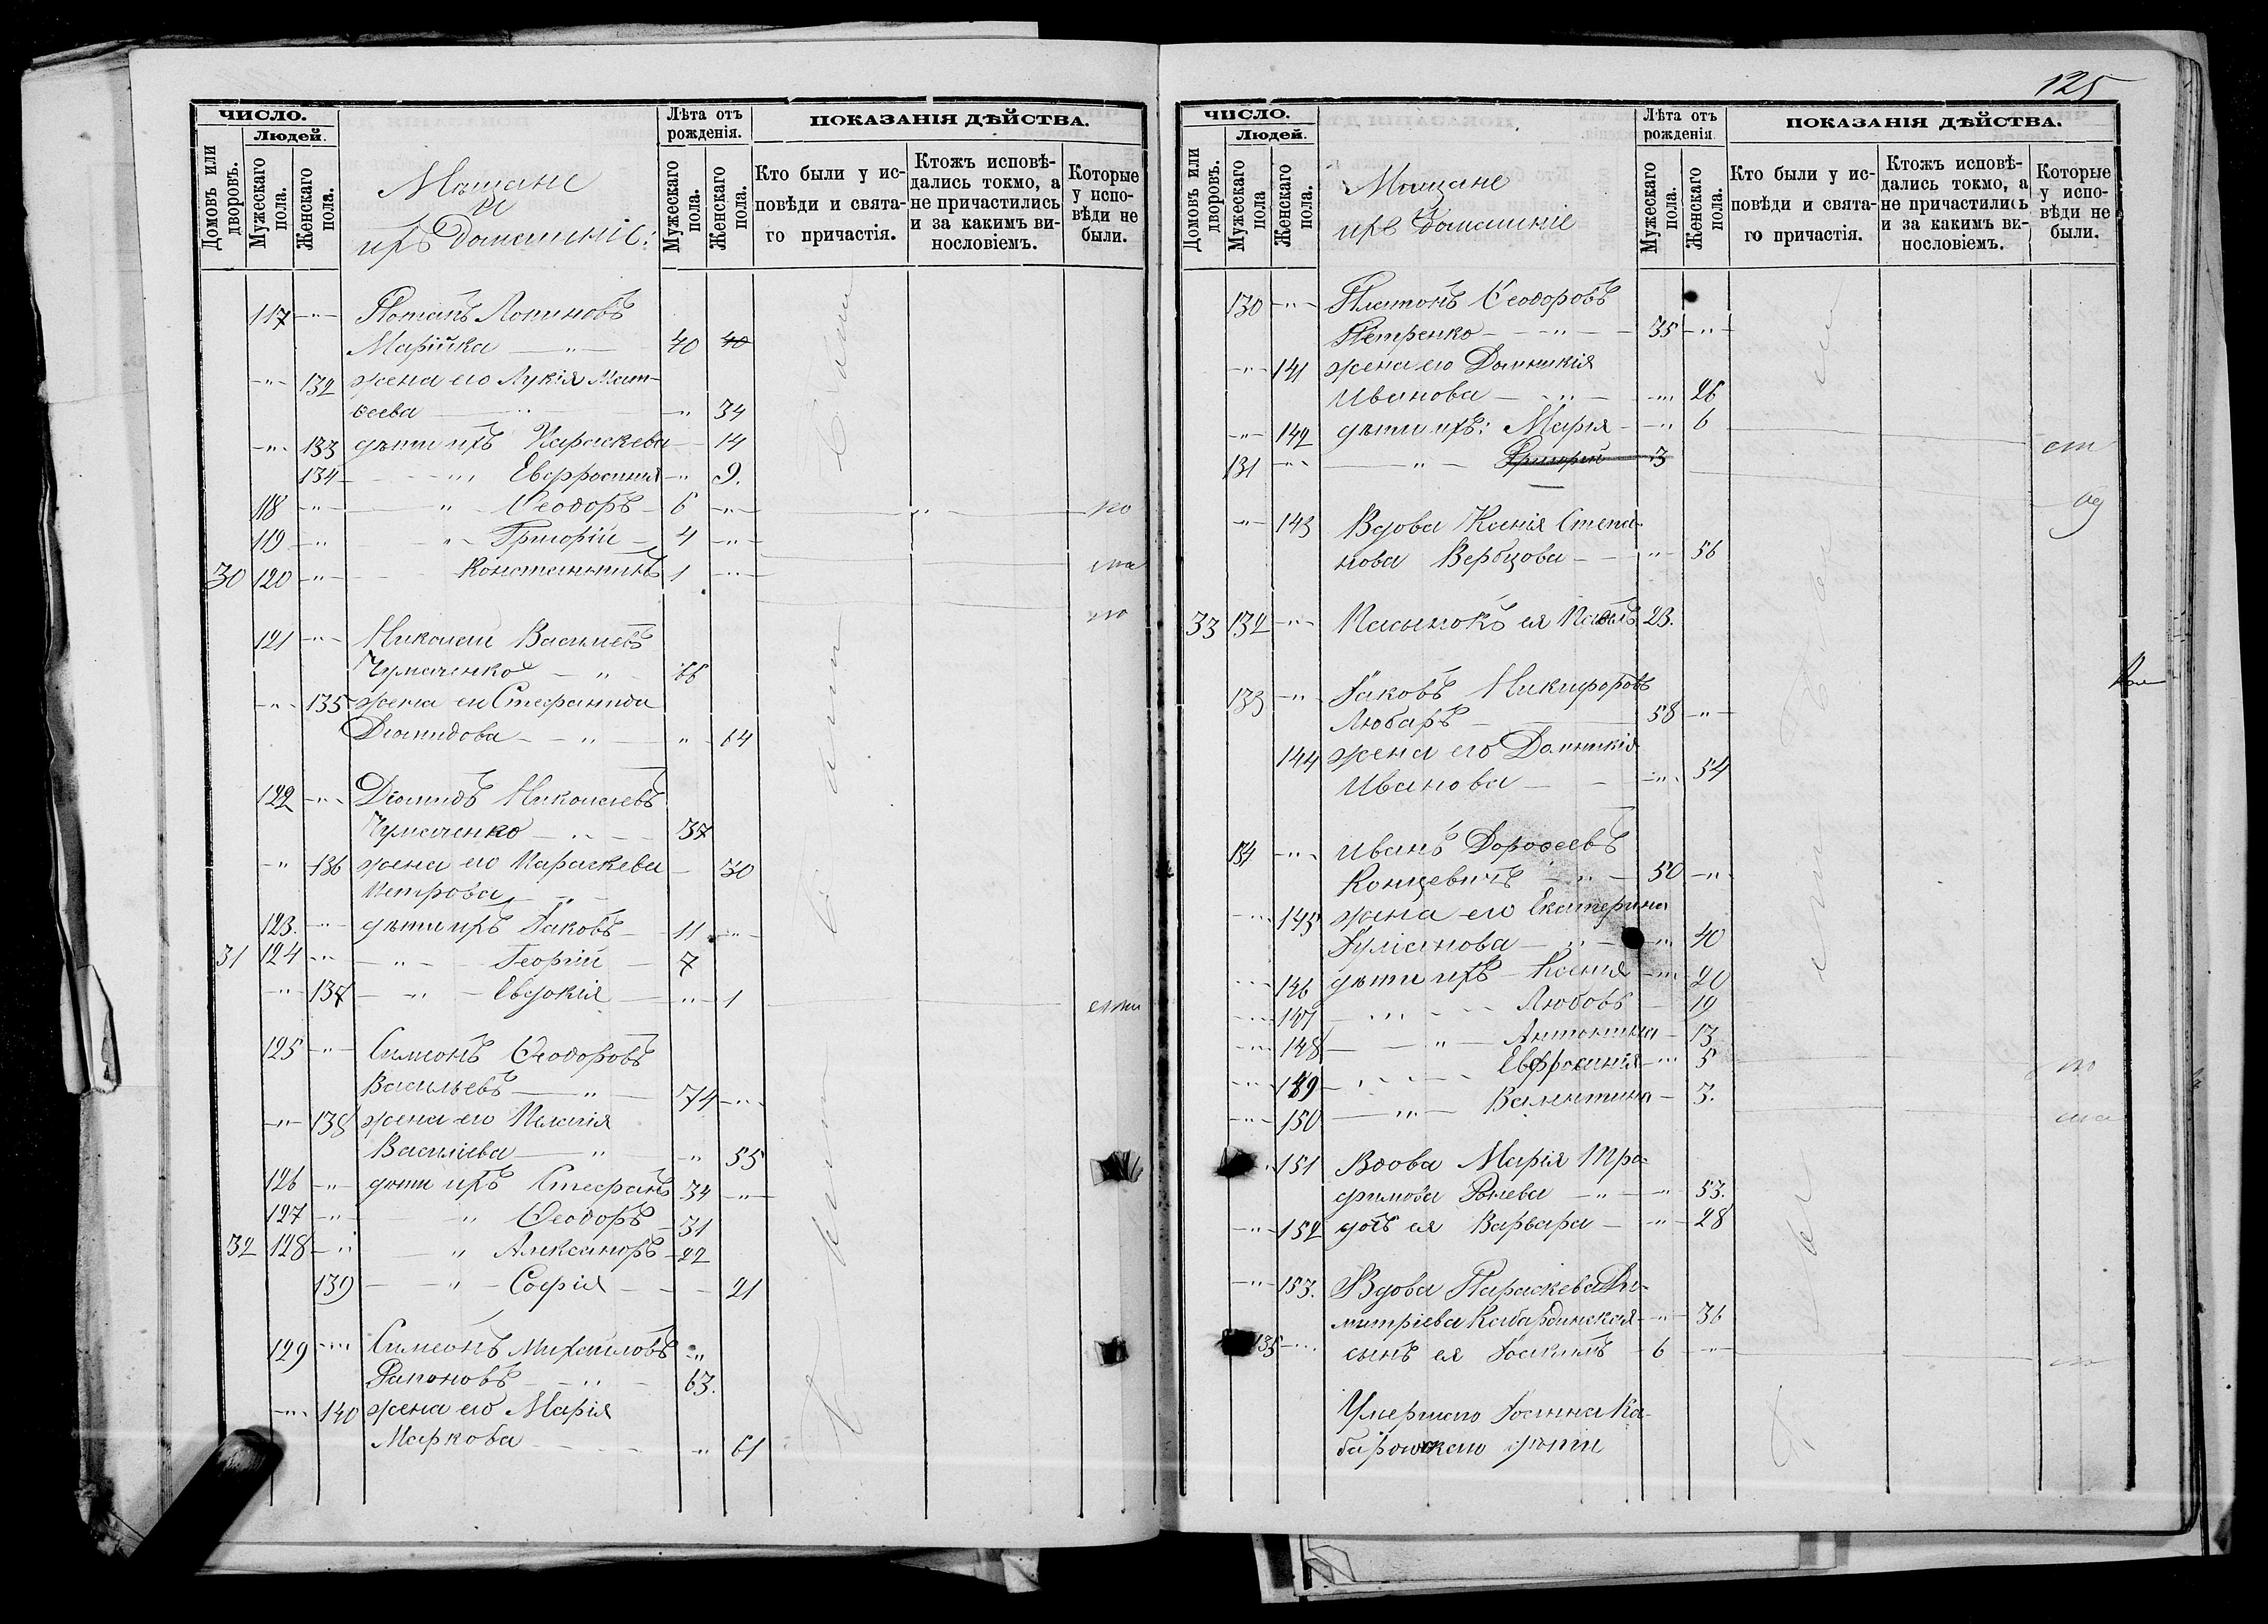 125
ЧИСЛО.
Людей.
Домовъ или дворовъ.
Мужескаго пола.
Женскаго пола.
Мѣщане
и
ихъ Домашніе:
Лѣта отъ рожденія.
Мужескаго пола.
Женскаго пола.
ПОКАЗАНІЯ ДѢЙСТВА.
Кто были у исповѣди и святаго причастія.
Ктожъ исповѣдались токмо, а не причастились и за какимъ винословіемъ.
Которые у исповѣди не были.
117 -"- Потапъ Логиновъ
Марійка -"- 40 40
-"- 132 жена его Лукія Мат-
ѳеева -"- 34
-"- 133 дѣти ихъ Параскева 14
134 Евфросинія -"- 9.
118 -"- " Ѳеодоръ 6 -"-
119 -"- " Григорій 4 -"-
30 120 -"- Константинъ 1 -"-
121 -"- Николай Васильевъ
Чумаченко -"- 66
-"- 135 жена его Стефанида
Діомидова -"- " 64
122 -"- Діомидъ Николаевъ
Чумаченко 37
-"- 136 жена его Параскева 30
Петрова
123. -"- дѣти ихъ Іаковъ 11 -"-
31 124 -"- -"- Георгій 7
-"- 137 -"- Евдокія -"- 1
125 -"- Симеонъ Ѳеодоровъ
Васильевъ -"- 74 -"-
-"- 138 жена его Пелагія
Василіева -"- " 55
126 -"- дѣти ихъ Стефанъ 34 -"-
127 -"- " Ѳеодоръ 31
32 128 -"- " Александръ 22
139 -"- Софія 21
129 -"- Симеонъ Михаиловъ -"-
63.
-"- 140 жена его Марія
Маркова " 61
ЧИСЛО.
Людей.
Домовъ или дворовъ.
Мужескаго пола
Женскаго пола.
Мѣщане
ихъ Домашніе
Лѣта отъ рожденія.
Мужескаго пола.
Женскаго пола.
ПОКАЗАНІЯ ДѢЙСТВА.
Кто были у исповѣди и святаго причастія.
Ктожъ исповѣдались токмо, а не причастились и за какимъ винословіемъ.
Которые у исповѣди не были.
130 -"- Платонъ Ѳеодоровъ
Петренко -"- 35 -"-
-"- 141 жена его Домникія
Иванова -"- -"- 26
-"- 142 дѣти ихъ: Марія -"- 6
131 -"- -"- Григорій 3
-"- 143 Вдова Ксенія Степа-
нова Вербцова -"- 56
33 132 -"- Пасынокъ ея Павелъ 23.
133 -"- Іаковъ Никифоровъ
Любаръ 58 -"-
144 жена его Домникія
Иванова -"- 54
134 -"- Иванъ Дороѳеевъ
Концевичъ -"- 50 -"-
-"- 145 жена его Екатерина
Іуліанова -"- -"- 40
-"- 146 дѣти ихъ Ксенія -"- 20
-"- 147 Любовь 19
-"- 148 -"- Антонина 13
-"- 149 Евфросинія -"- 5
-"- 150 -"- Валентина 3.
151 Вдова Марія Тро-
фимова -"- 53.
-"- 152 дочь ея Варвара -"- 28
-"- 153. Вдова Параскева Ди-
митріева Кабардинская -"- 36
135 -"- сынъ ея Іоакимъ 6 -"-
Умершаго Іоанна Ка-
дѣти